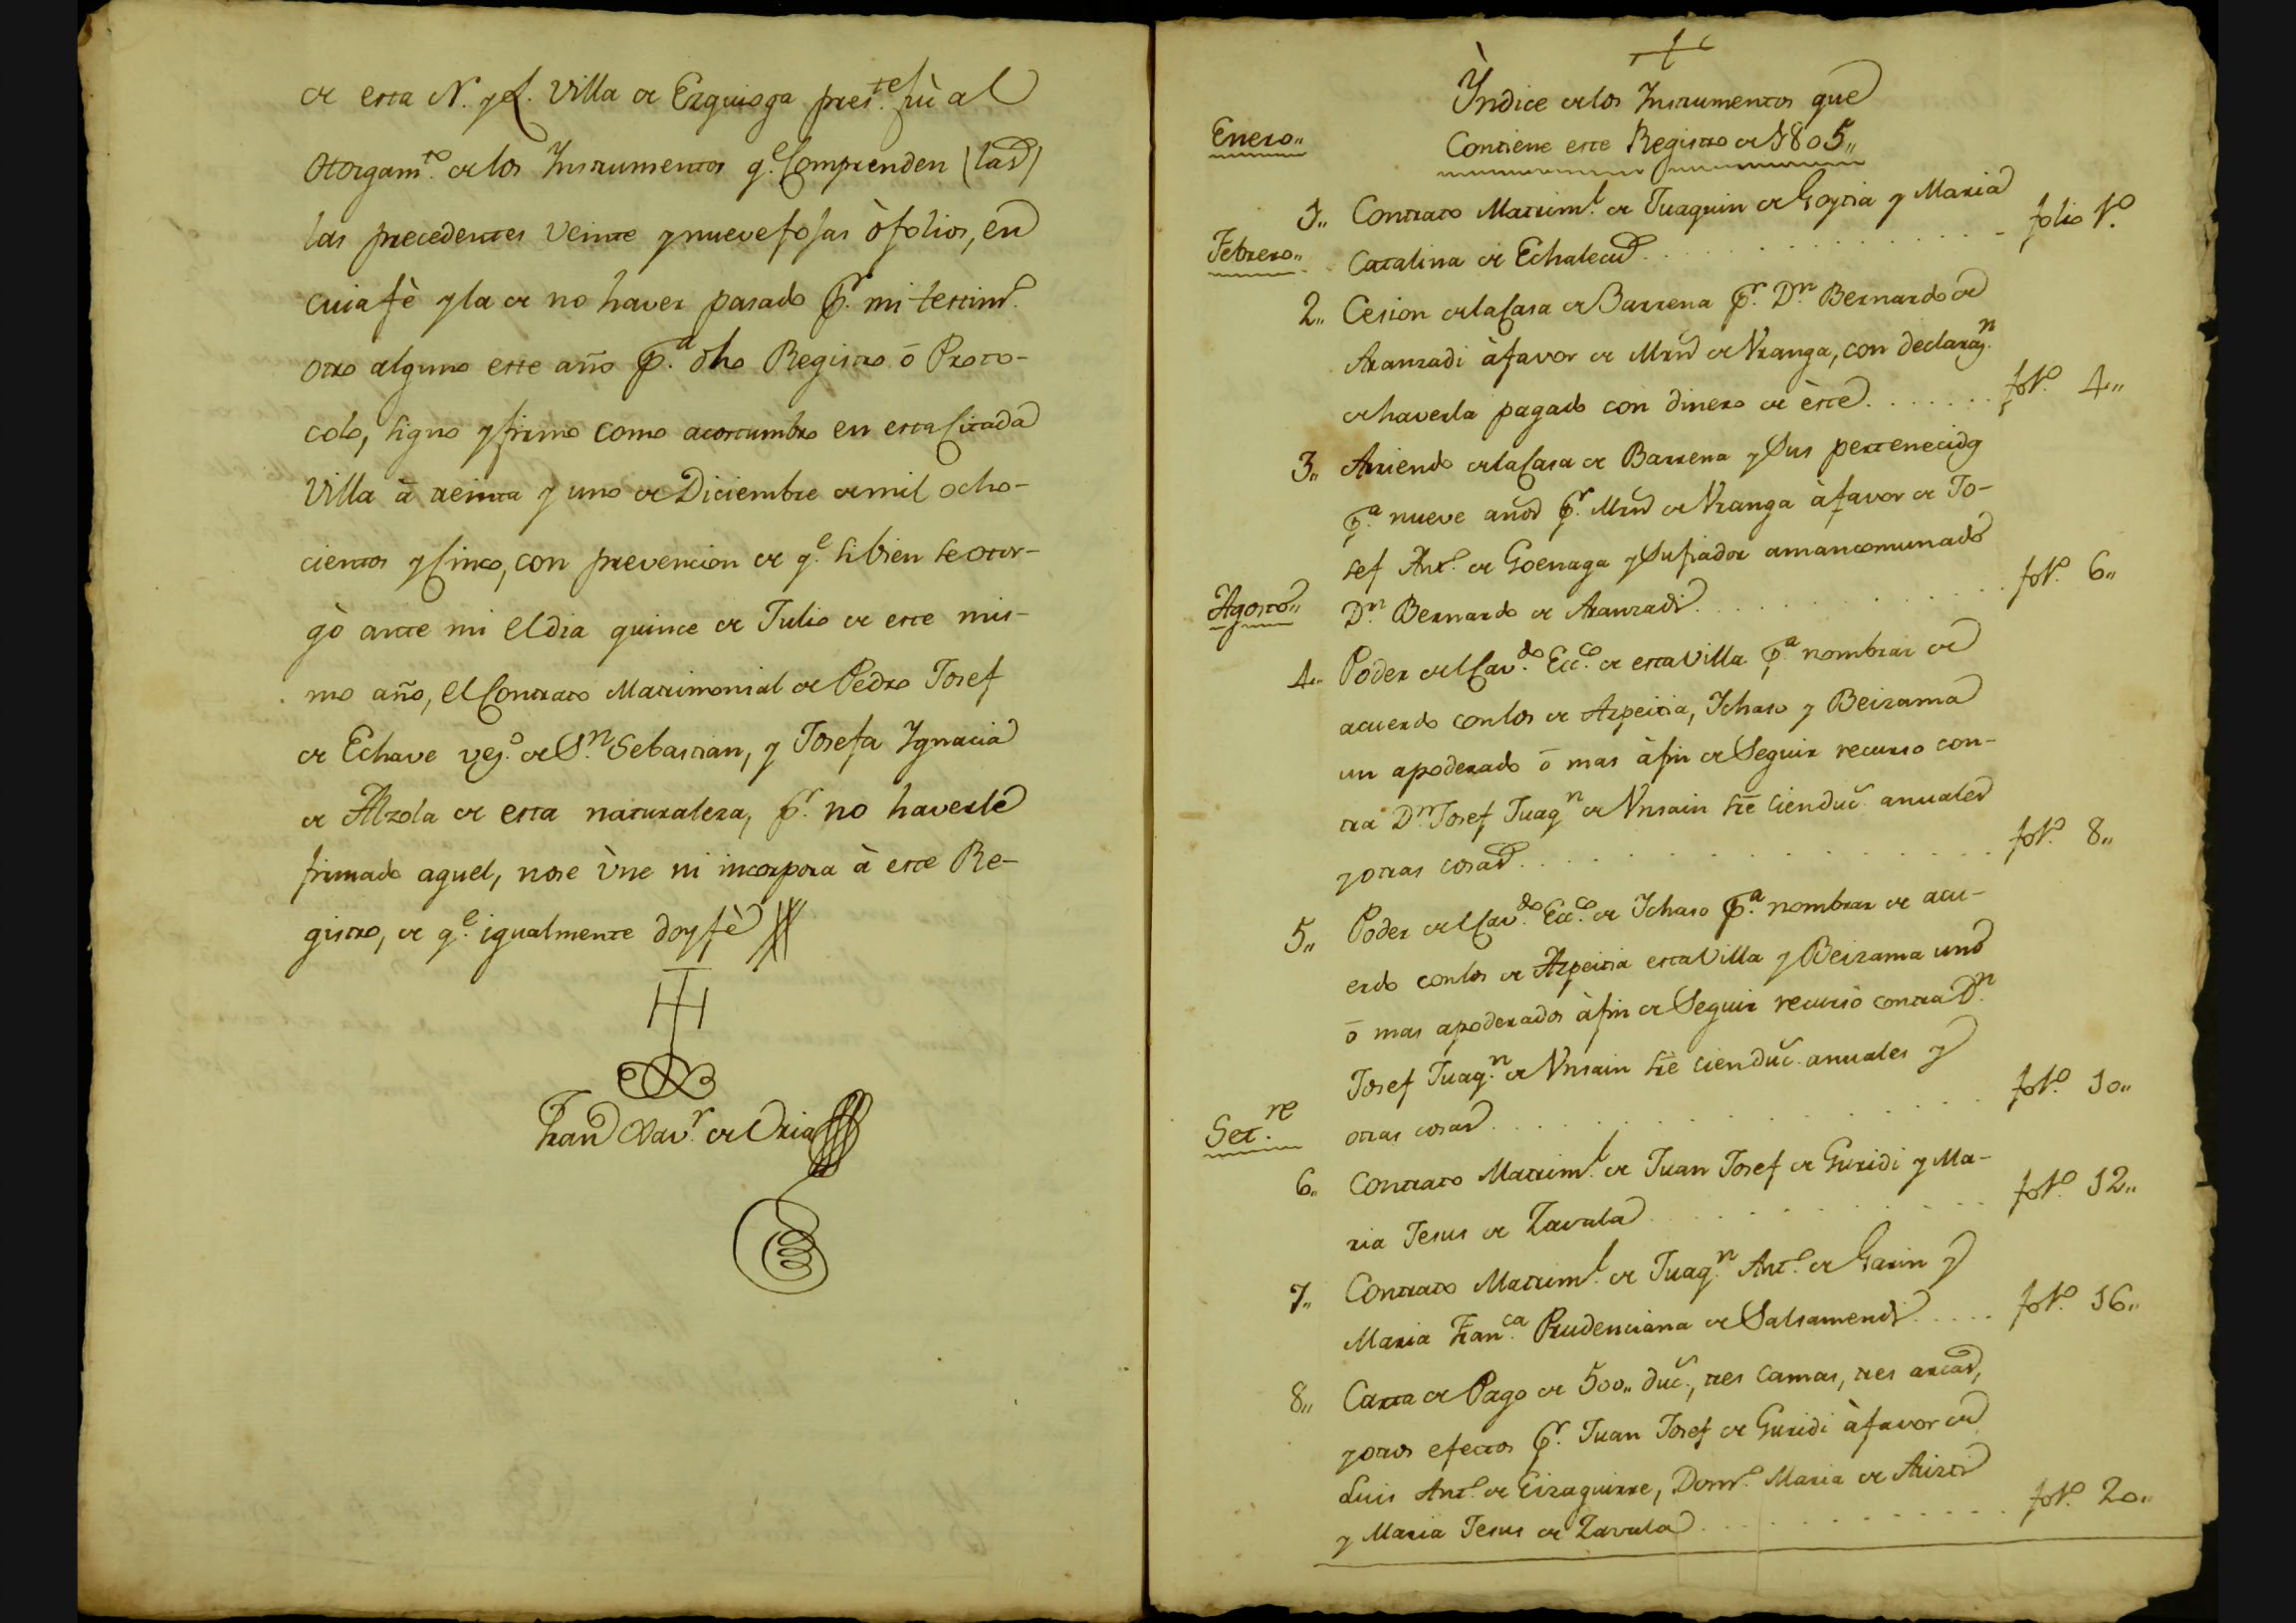 de esta N. y L. Villa de Ezquioga pres.te fuì al
Otorgam.to de los Instrumentos q.e Comprenden (las)
las precedentes veinte y nueve fojas ò folios, en
cuia fè y la de no haver pasado p.r mi testim.o
otro alguno este año p.a dho Registro ó Proto-
colo, signo y firmo como acostumbro en esta Citada
Villa à treinta y uno de Diciembre de mil ocho-
cientos y Cinco, con prevencion de q.e si bien se otor-
gò ante mi el dia quince de Julio de este mis-
mo año, el Contrato Matrimonial de Pedro Josef
de Echave vez.o de S.n Sebastian, y Josefa Ygnacia
de Alzola de esta naturaleza, p.r no haverle
firmado aquel, no se ùne ni incorpora à este Re-
gistro, de q.e igualmente doy fè
Fran.co Xav.r de Oria
Yndice de los Instrumentos que
Contiene este Registro de 1805,,
Enero,,
1,, Contrato Matrim.l de Juaquin de Goytia y Maria
Febrero,,
Catalina de Echalecu. folio 1.o
2,, Cesion de la Casa de Barrena p.r D.n Bernardo de
Aranzadi à favor de Mrn de Vranga, con declaraz.n
de haverla pagado con dinero de èste. fol.o 4,,
3,, Arriendo de la Casa de Barrena y Sus pertenecidos
p.a nueve años p.r Mrn de Vranga à favor de Jo-
sef Ant.o de Goenaga y Su fiador amancomunado
Agosto,,
D.n Bernardo de Aranzadi. fol.o 6,,
4,, Poder del Cav.do Ecc.co de esta Villa p.a nombrar de
acuerdo con los de Azpeitia, Ichaso y Beizama
un apoderado ó mas à fin de Seguir recurso con-
tra D.n Josef Juaq.n de Vnsain sre cien duc.s anuales
y otras cosas. fol.o 8,,
5,, Poder del Cav.do Ecc.co de Ichaso p.a nombrar de acu-
erdo con los de Azpeitia esta Villa y Beizama uno
ó mas apoderados à fin de Seguir recurso contra D.n
Josef Juaq.n de Vnsain sre cien duc.s anuales y
otras cosas. fol.o 10,,
Set.re
6,, Contrato Matrim.l de Juan Josef de Guridi y Ma-
ria Jesus de Zavala. fol.o 12,,
7,, Contrato Matrim.l de Juaq.n Ant.o de Garin y
Maria Fran.ca Prudenciana de Salsamendi. fol.o 16,,
8,, Carta de Pago de 500,, duc.s, tres camas, tres arcas,
y otros efectos p.r Juan Josef de Guridi à favor de
Luis Ant.o de Eizaguirre, Dom.o Maria de Arizti
y Maria Jesus de Zavala. fol.o 20,,